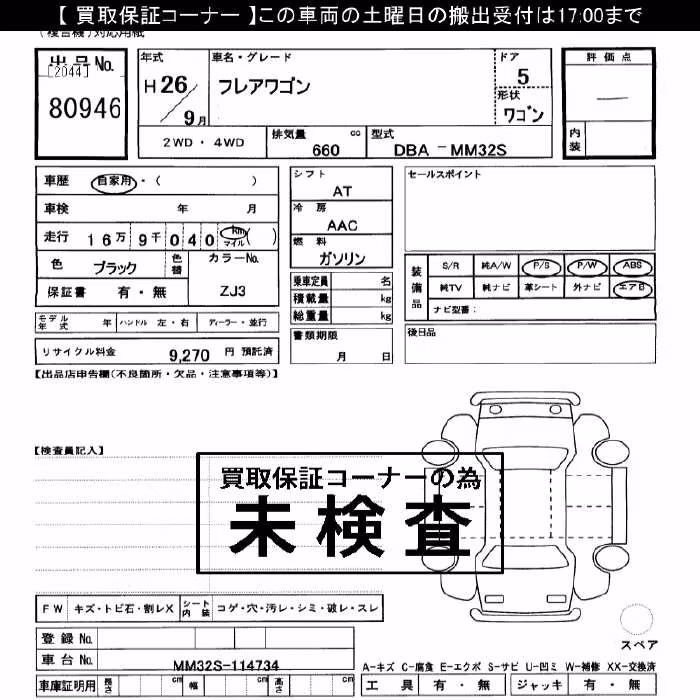 【 買取保証コーナー 】この車両の土曜日の搬出受付は17:00まで
(複合機)対応用紙
出品No.
[2044]
80946
年式
H 26／9月
車名・グレード
フレアワゴン
ドア
5
形状
ワゴン
評価点
—
内装
2WD・4WD
排気量 660 cc
型式 DBA－MM32S
車歴 自家用・( )
車検 年 月
走行 16万9千040 km マイル ( )
色 ブラック 色替 カラーNo.
保証書 有・無 ZJ3
モデル年式 年 ハンドル 左・右 ディーラー・並行
リサイクル料金 9,270 円 預託済
シフト
AT
冷房
AAC
燃料
ガソリン
乗車定員 名
積載量 kg
総重量 kg
書類期限
月 日
セールスポイント
装備品
S/R 純A/W P/S P/W ABS
純TV 純ナビ 革シート 外ナビ エアB
ナビ型番：
後日品
【出品店申告欄(不良箇所・欠品・注意事項等)】
【検査員記入】
買取保証コーナーの為
未検査
FW キズ・トビ石・割レX シート内装 コゲ・穴・汚レ・シミ・破レ・スレ
登録No.
車台No. MM32S-114734
車庫証明用 長さ cm 幅 cm 高さ cm
スペア
A-キズ C-腐食 E-エクボ S-サビ U-凹ミ W-補修 XX-交換済
工具 有・無 ジャッキ 有・無